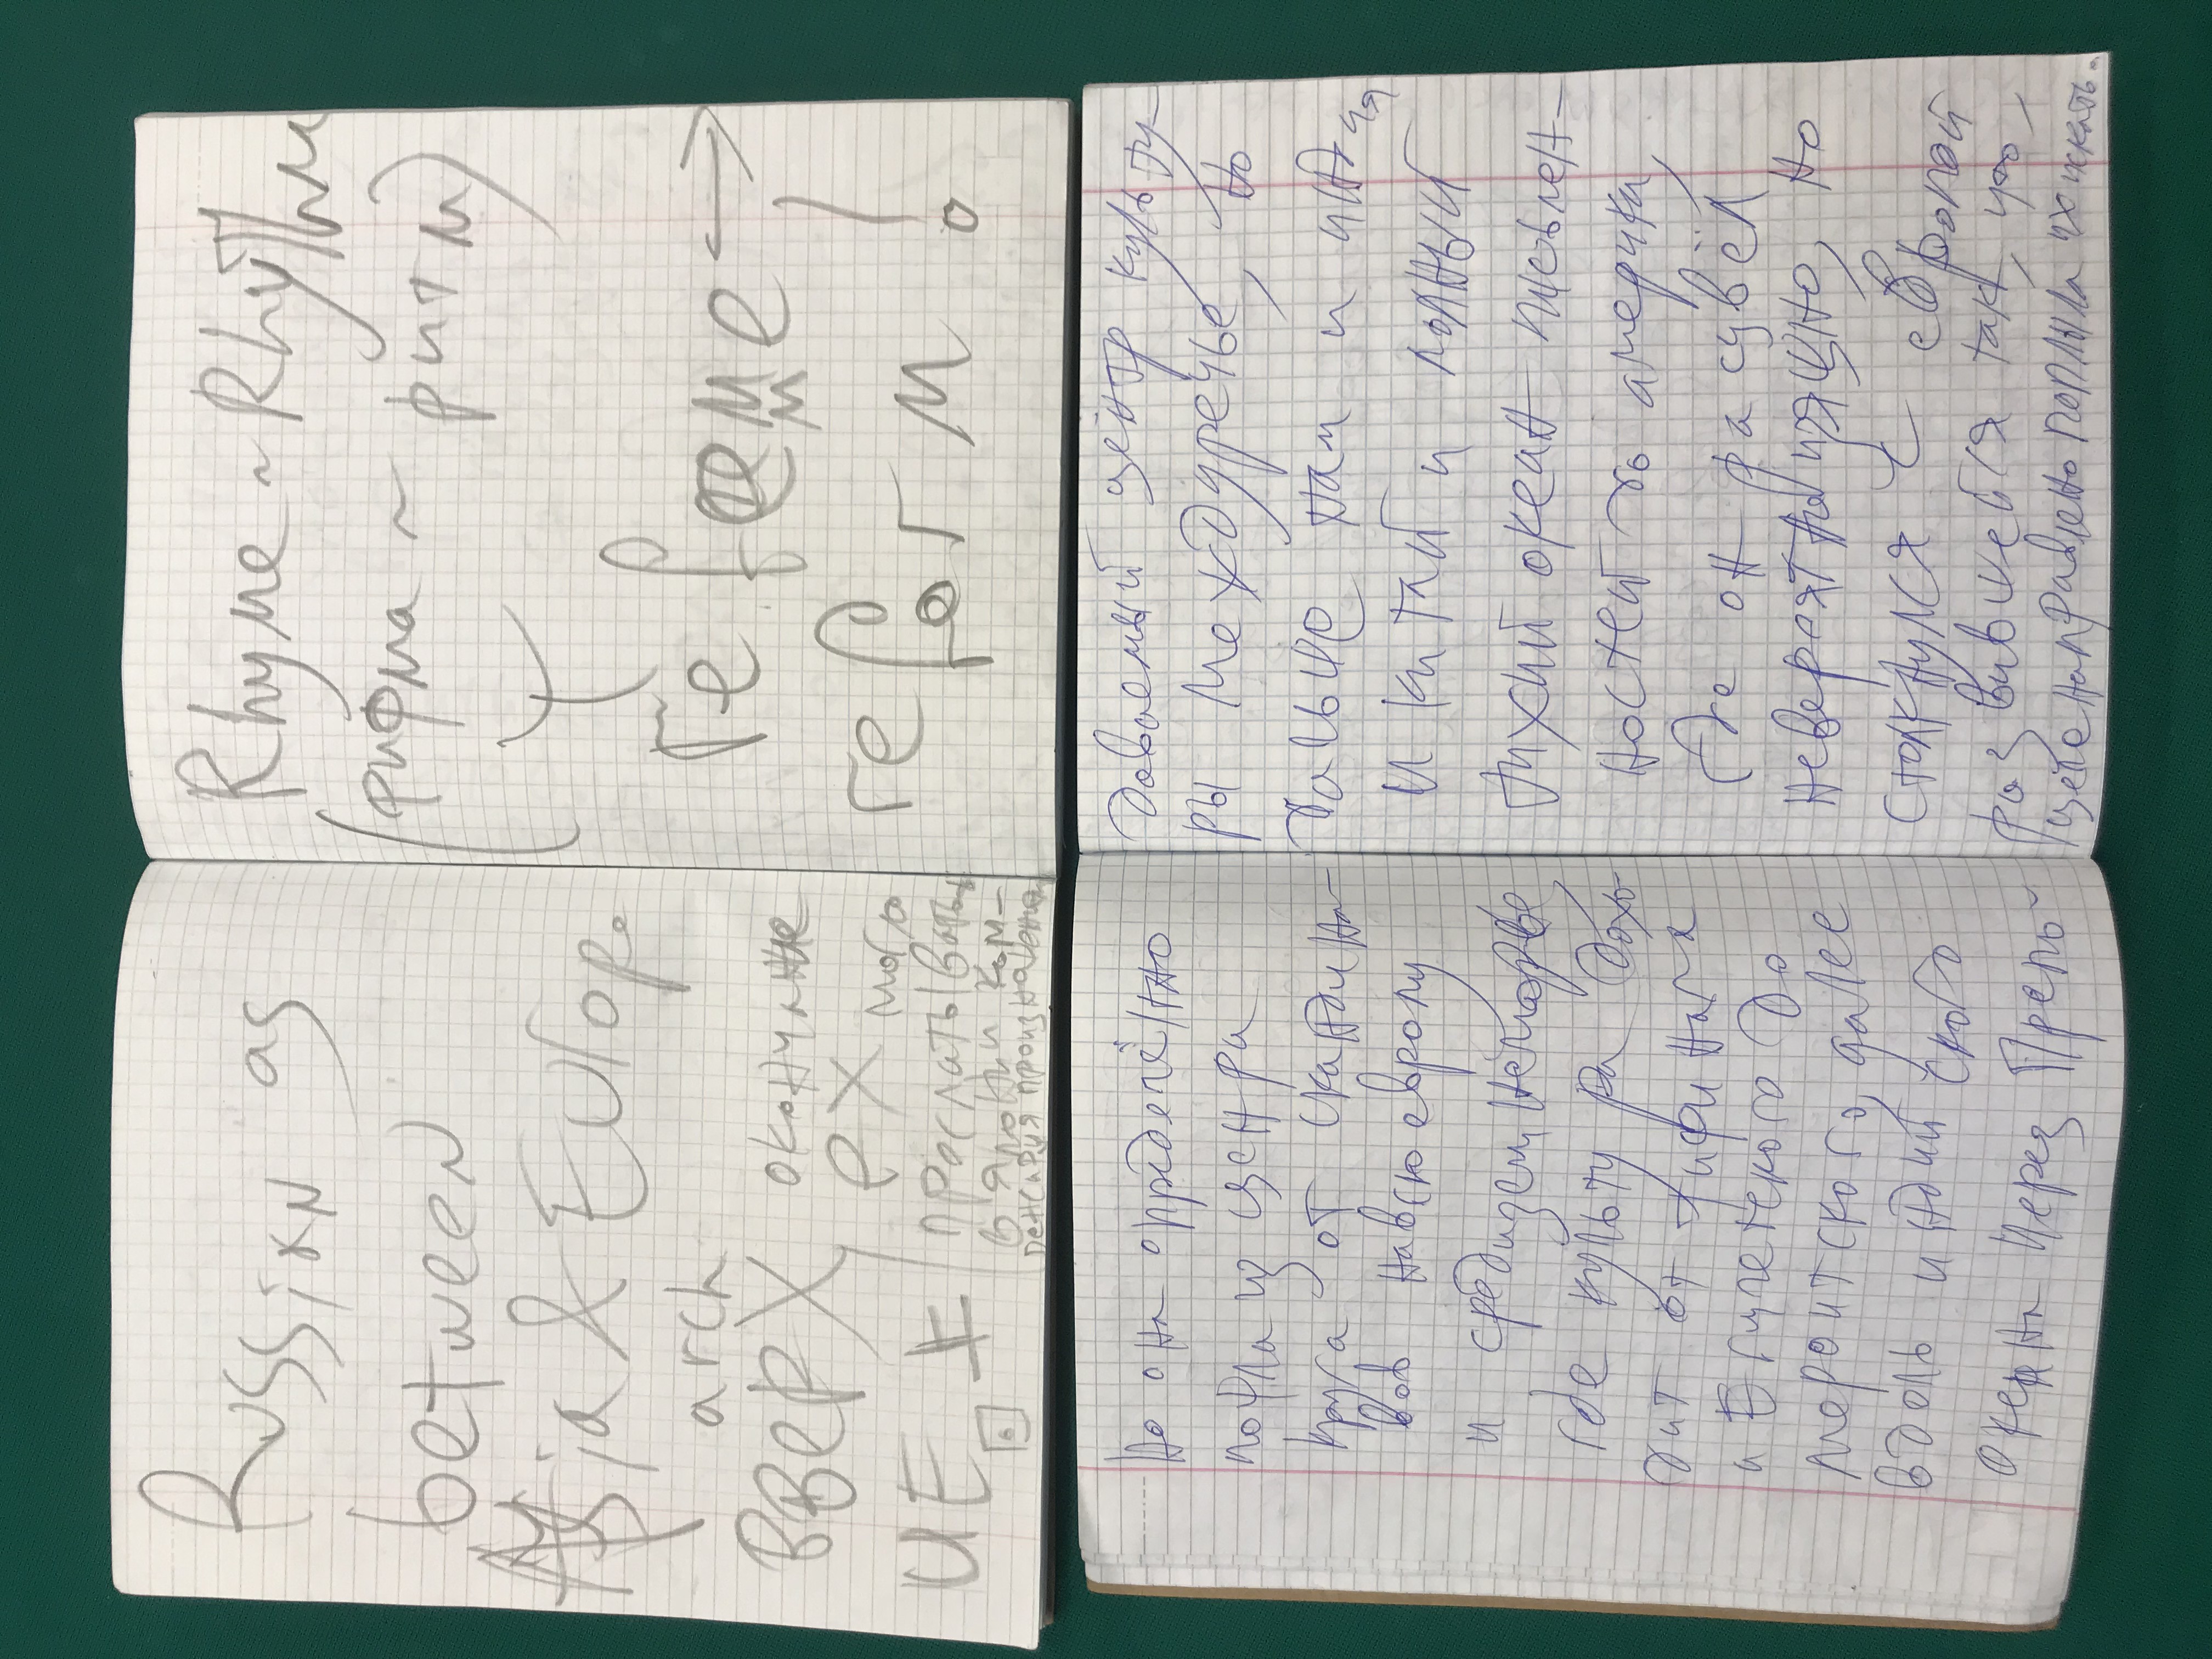 Russian as
between
Asia & Europe
arch
вверх
окончание
ех могло
UE ±
прослатываться
в японии ком-
пенсируя произношение
Rhyme ~ Rhythm
(рифма ~ ритм)
refeme →
reform!
Но она определённо
пошла из центра
круга от скандина-
вов на всю европу
и средиземноморье,
где культура дохо-
дит от тифинага
и Египетского до
мероитского, далее
вдоль индийского
океана через Препо-
даваемый центр культу-
ры Междуречье, но
дальше там и индия
и китай и полный
тихий океан письмен-
ностей до америки,
где он расцвёл
невероятно изящно, но
столкнулся с европой
развившейся так, что,
целенаправлено поплыла их искать.